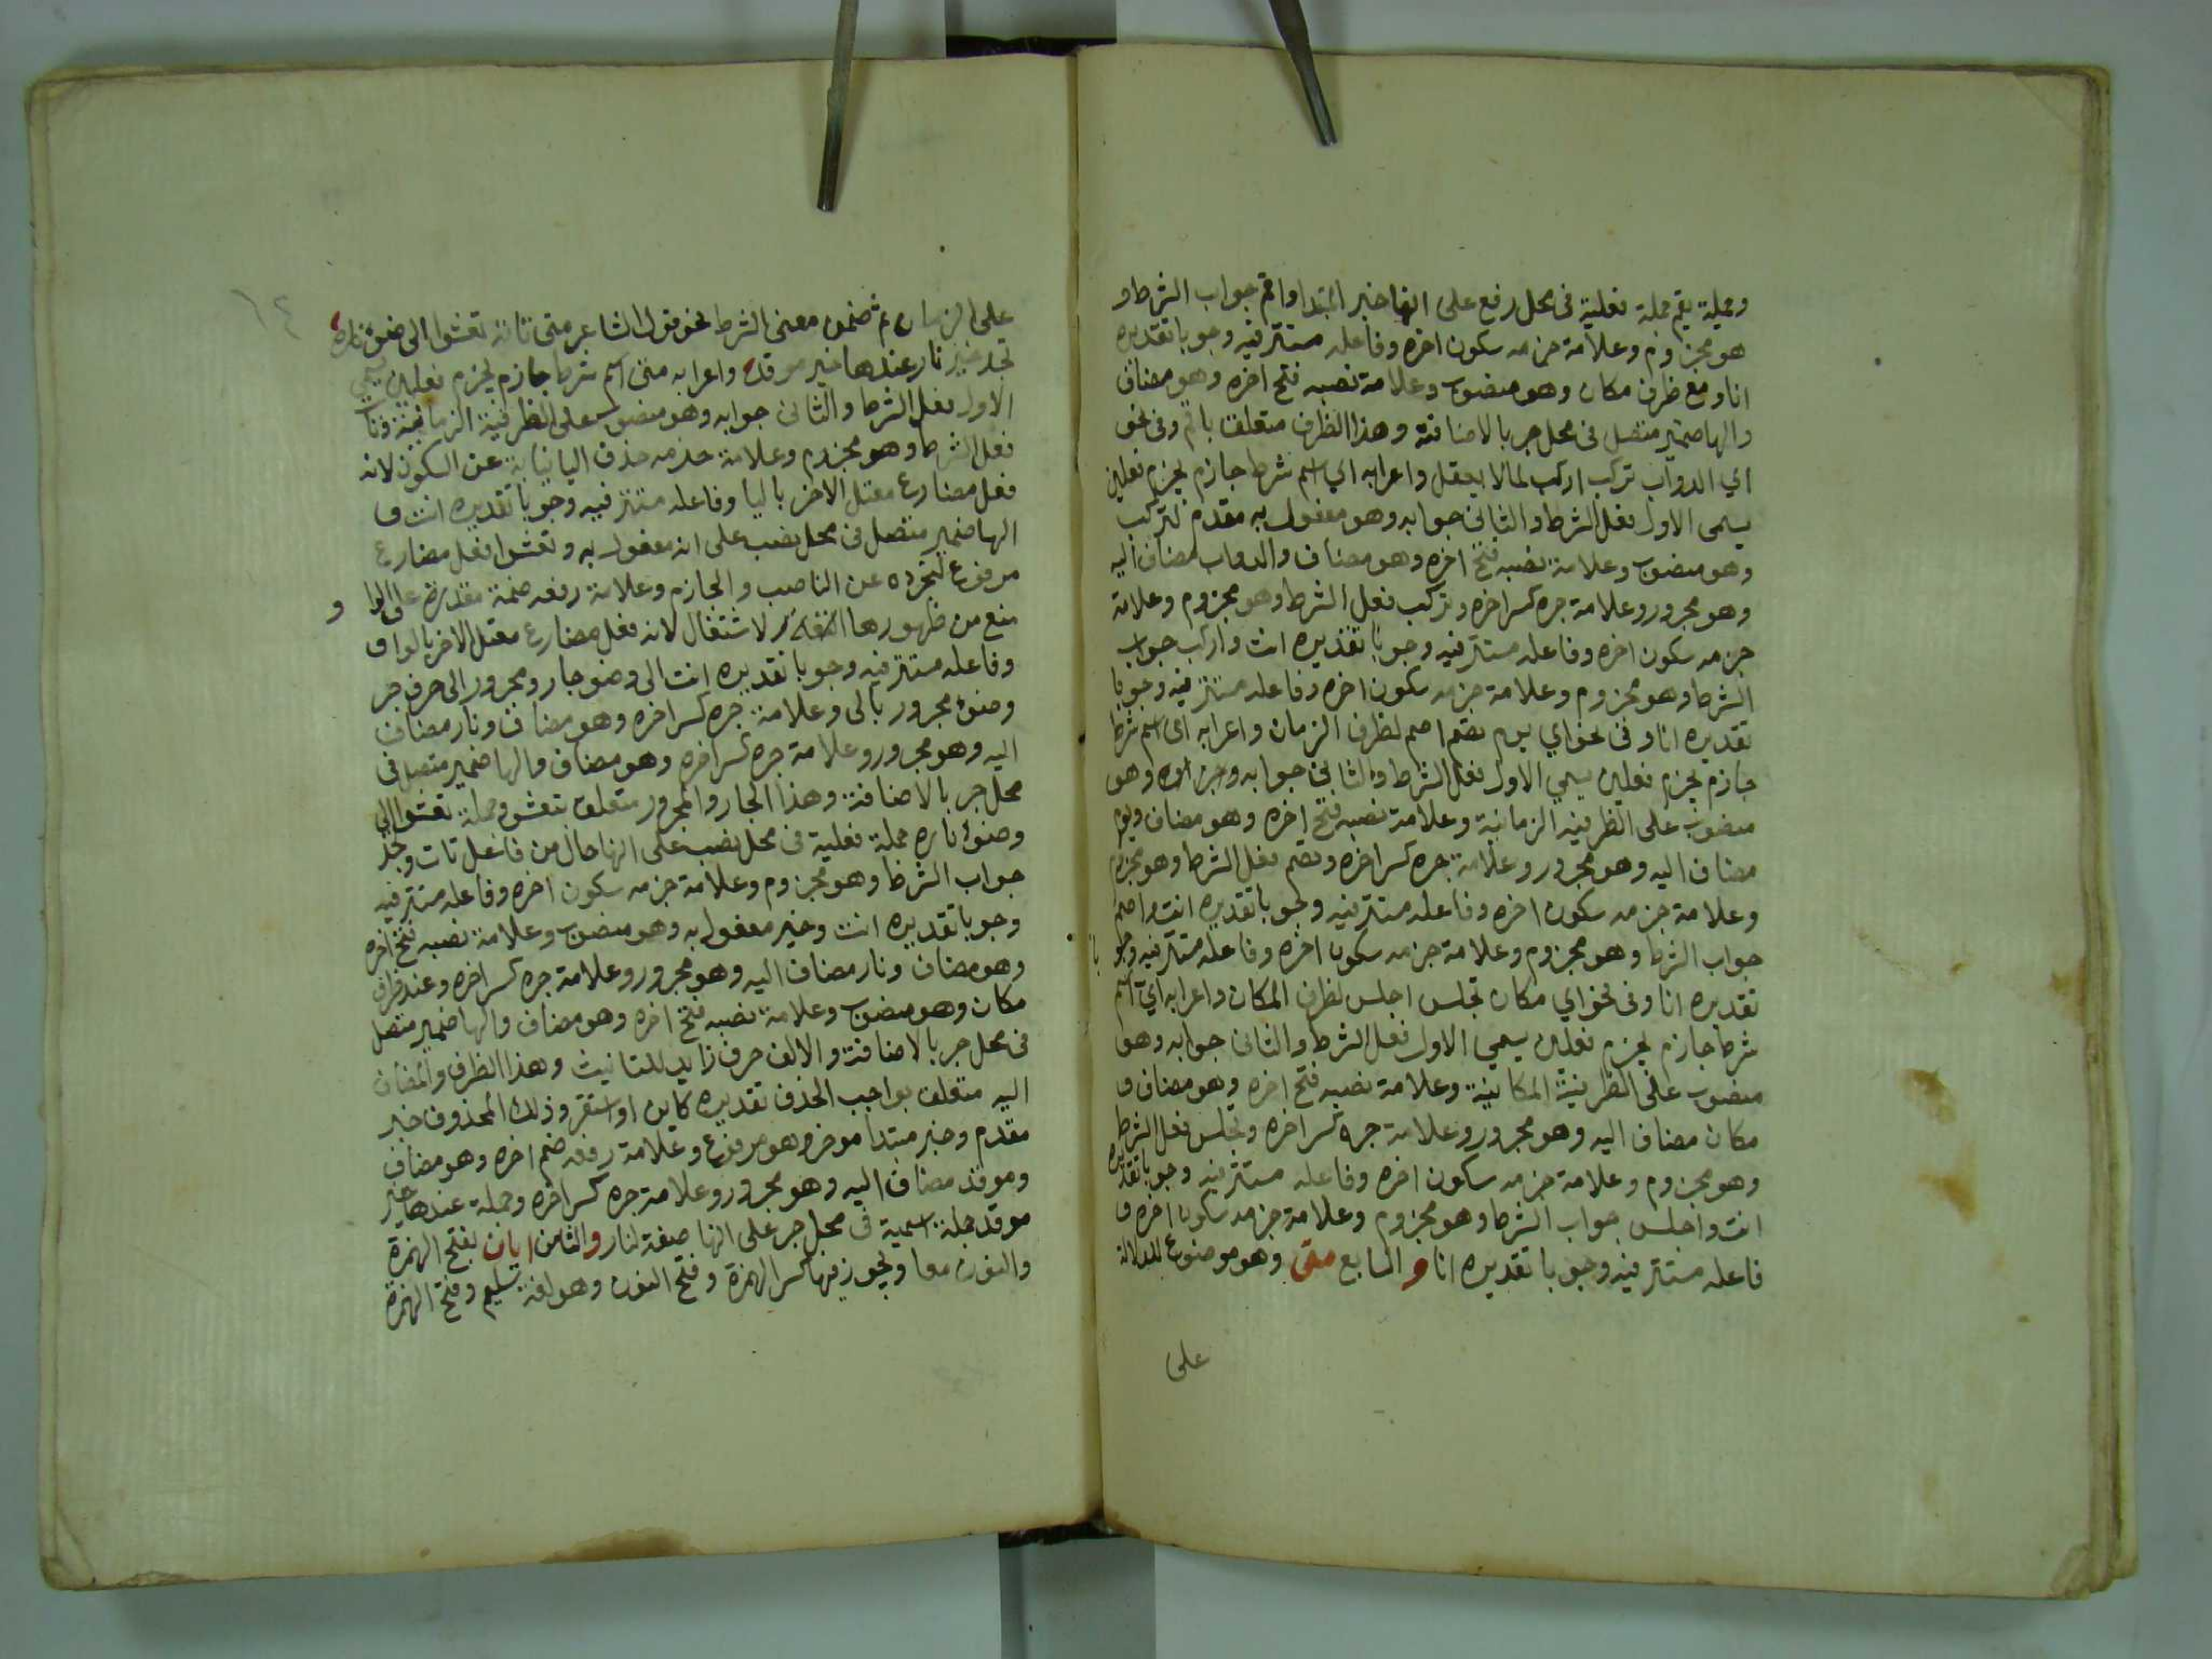 وجملة يقم جملة فعلية فى محل رفع على انها خبر المبتدا واقم جواب الشرط و
هو مجزوم وعلامة جزمه سكون اخره وفاعله مستتر فيه وجوبا تقديره
انا ومع ظرف مكان وهو منصوب وعلامة نصبه فتح اخره وهو مضاف
والها ضمير متصل فى محل جر بالاضافة وهذا الظرف متعلق باقم وفى نحو
اي الدواب تركب اركب لما لا يعقل واعرابه اي اسم شرط جازم يجزم فعلين
يسمى الاول فعل الشرط والثانى جوابه وهو مفعول به مقدم لتركب
وهو منصوب وعلامة نصبه فتح اخره وهو مضاف والدواب مضاف اليه
وهو مجرور وعلامة جره كسر اخره وتركب فعل الشرط وهو مجزوم وعلامة
جزمه سكون اخره وفاعله مستتر فيه وجوبا تقديره انت واركب جواب
الشرط وهو مجزوم وعلامة جزمه سكون اخره وفاعله مستتر فيه وجوبا
تقديره انا وفى نحو اي يوم تصم اصم لظرف الزمان واعرابه اى اسم شرط
جازم يجزم فعلين يسمي الاول فعل الشرط والثانى جوابه وجزاوه وهو
منصوب على الظرفيه الزمانية وعلامة نصبه فتح اخره وهو مضاف ويوم
مضاف اليه وهو مجرور وعلامة جره كسر اخره وتصم فعل الشرط وهو مجزوم
وعلامة جزمه سكون اخره وفاعله مستتر فيه وجوبا تقديره انت واصم
جواب الشرط وهو مجزوم وعلامة جزمه سكون اخره وفاعله مستتر فيه وجو با
تقديره انا وفى نحو اي مكان تجلس اجلس لظرف المكان واعرابه اي اسم
شرط جازم يجزم فعلين يسمي الاول فعل الشرط والثانى جوابه وهو
منصوب على الظرفية المكانية وعلامة نصبه فتح اخره وهو مضاف و
مكان مضاف اليه وهو مجرور وعلامة جره كسر اخره وتجلس فعل الشرط
وهو مجزوم وعلامة جزمه سكون اخره وفاعله مستتر فيه وجوبا تقديره
انت واجلس جواب الشرط وهو مجزوم وعلامة جزمه سكون اخره و
فاعله مستتر فيه وجوبا تقديره انا والسابع متى وهو موضوع للدلالة
على
١٤
على الزمان ثم ضمن معنى الشرط نحو قول الشاعر متى تاته تعشوا الى ضوء ناره
تجد خير نار عندها خير موقد واعرابه متى اسم شرط جازم يجزم فعلين يسمي
الاول فعل الشرط والثانى جوابه وهو منصوب على الظرفية الزمانية وتات
فعل الشرط وهو مجزوم وعلامة جزمه حذف اليا نيابة عن السكون لانه
فعل مضارع معتل الاخر باليا وفاعله مستتر فيه وجوبا تقديره انت و
الها ضمير متصل فى محل نصب على انه مفعول به وتعشوا فعل مضارع
مرفوع لتجرده عن الناصب والجازم وعلامة رفعه ضمة مقدرة على الوا و
منع من ظهورها الثقل لا اشتغال لانه فعل مضارع معتل الاخر بالواو
وفاعله مستتر فيه وجوبا تقديره انت الى وضو جار ومجرور الى حرف جر
وضوء مجرور بالى وعلامة جره كسر اخره وهو مضاف ونار مضاف
اليه وهو مجرور وعلامة جره كسر اخره وهو مضاف والها ضمير متصل فى
محل جر بالاضافة وهذا الجار والمجرور متعلق بتعشو وجملة تعشوا الى
وضوء ناره جملة فعلية فى محل نصب على انها حال من فاعل تات وتجد
جواب الشرط وهو مجزوم وعلامة جزمه سكون اخره وفاعله مستتر فيه
وجوبا تقديره انت وخير مفعول به وهو منصوب وعلامة نصبه فتح اخره
وهو مضاف ونار مضاف اليه وهو مجرور وعلامة جره كسر اخره وعند ظرف
مكان وهو منصوب وعلامة نصبه فتح اخره وهو مضاف والها ضمير متصل
فى محل جر بالاضافة والالف حرف زايد للتانيث وهذا الظرف والمضاف
اليه متعلق بواجب الحذف تقديره كاين او استقر وذلك المحذوف خبر
مقدم وخير مبتدا موخر وهو مرفوع وعلامة رفعه ضم اخره وهو مضاف
وموقد مضاف اليه وهو مجرور وعلامة جره كسر اخره وجملة عندها خير
موقد جملة اسمية فى محل جر على انها صفة لنار والثامن ايان بفتح الهمزة
والنون معا ويجوز فيها كسر الهمزة وفتح النون وهو لغة سليم وفتح الهمزة